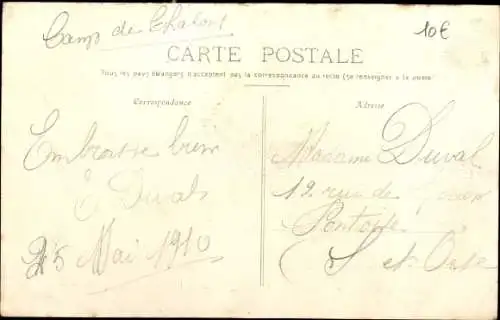 Camp de Châlons
10€
CARTE POSTALE
Tous les pays étrangers n'acceptent pas la correspondance au recto (Se renseigner à la poste)
Correspondance
Adresse
Embrasse bien
E Duval
25 Mai 1910
Madame Duval
12 rue de
Pontoise
S et Oise